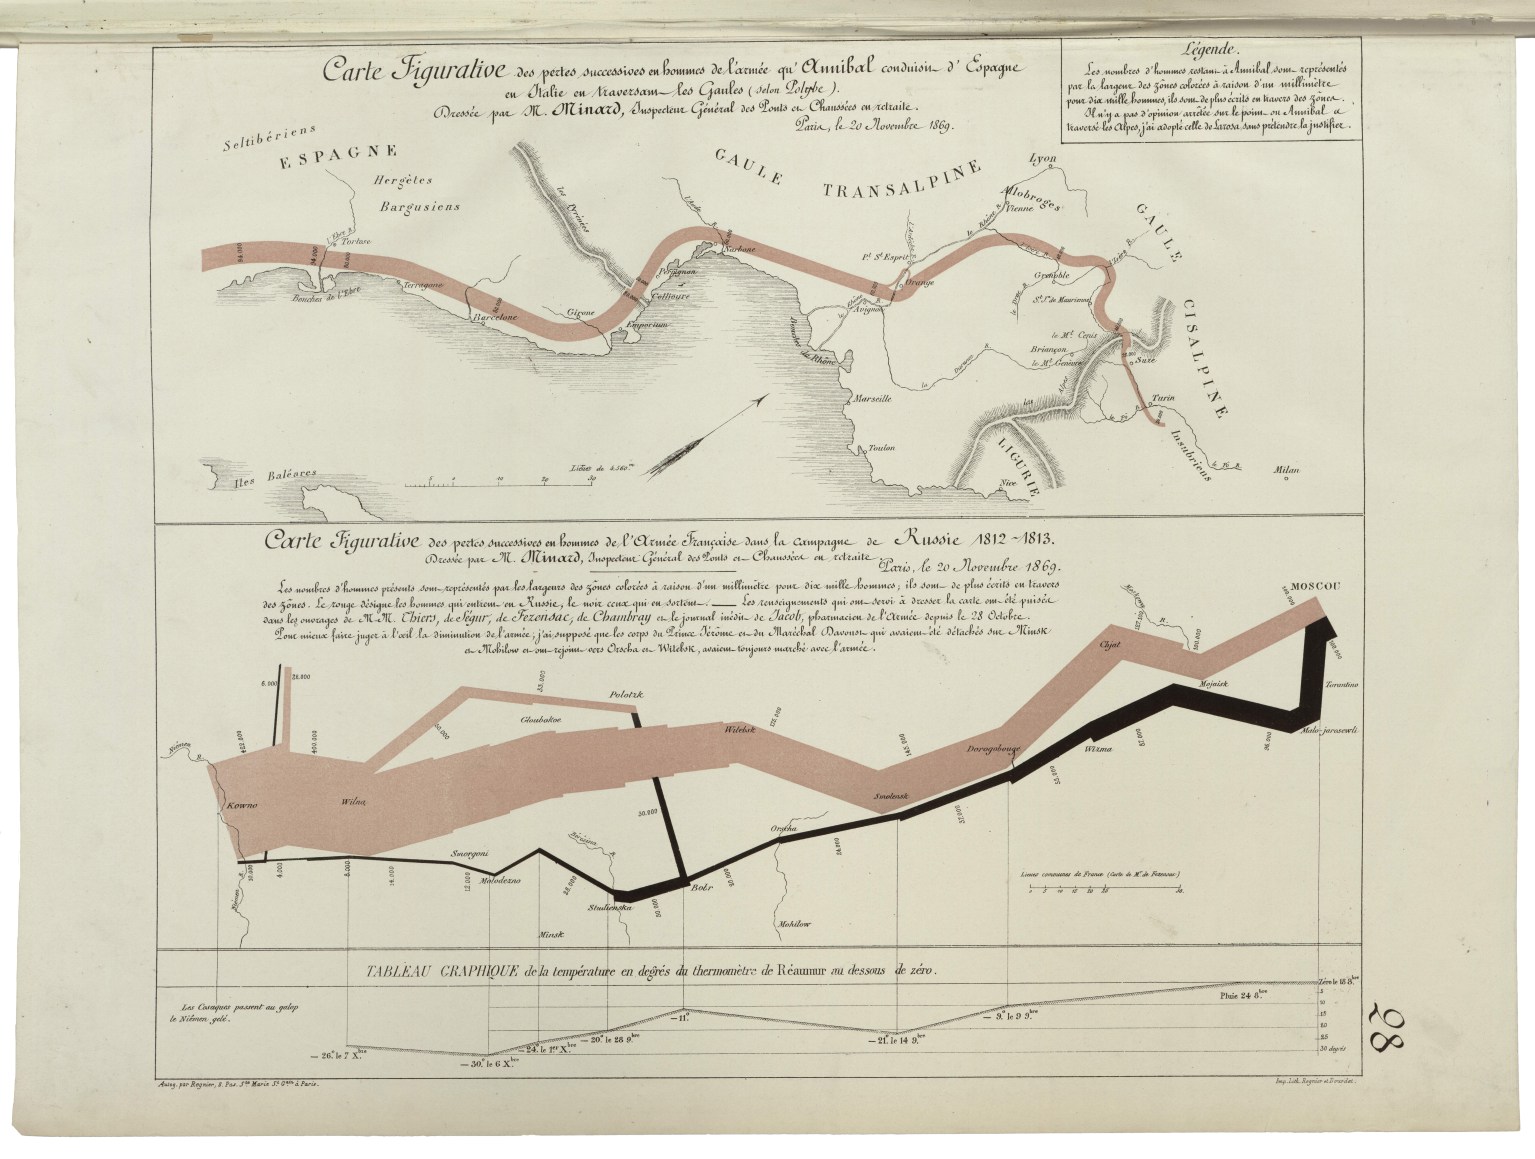 Carte Figurative des pertes successives en hommes de l'armée qu'Annibal conduisit d'Espagne
en Italie en traversant les Gaules (selon Polybe).
Dressée par M. Minard, Inspecteur Général des Ponts et Chaussées en retraite.
Paris, le 20 Novembre 1869.
Légende.
Les nombres d'hommes restant à Annibal sont représentés
par la largeur des zônes colorées à raison d'un millimètre
pour dix mille hommes, ils sont de plus écrits en travers des zônes.
Il n'y a pas d'opinion arrêtée sur le point où Annibal a
traversé les Alpes, j'ai adopté celle de Larosa, sans prétendre la justifier.
Seltibériens
ESPAGNE
Hergètes
Bargusiens
les Pyrénées
GAULE TRANSALPINE
Lyon
Allobroges
Vienne
le Rhône R.
GAULE CISALPINE
l'Ebre R.
Tortose
Bouches de l'Ebre
Tarragone
Barcelone
Girone
Emporium
Collioure
Perpignan
Narbonne
Pt. St. Esprit
Orange
Avignon
Bouches du Rhône
Grenoble
St. J. de Maurienne
le Mt. Cenis
Briançon
le Mt. Genèvre
Suze
la Durance R.
les Alpes
Turin
le Pô R.
Marseille
Toulon
LIGURIE
Nice
Insubriens
le Pô R.
Milan
Iles Baléares
Lieues de 4.560.m
Carte Figurative des pertes successives en hommes de l'Armée Française dans la campagne de Russie 1812~1813.
Dressée par M. Minard, Inspecteur Général des Ponts et Chaussées en retraite.
Paris, le 20 Novembre 1869.
Les nombres d'hommes présents sont représentés par les largeurs des zônes colorées à raison d'un millimètre pour dix mille hommes; ils sont de plus écrits en travers
des zônes. Le rouge désigne les hommes qui entrent en Russie, le noir ceux qui en sortent. — Les renseignements qui ont servi à dresser la carte ont été puisés
dans les ouvrages de M.M. Thiers, de Ségur, de Fezensac, de Chambray et le journal inédit de Jacob, pharmacien de l'Armée depuis le 28 Octobre.
Pour mieux faire juger à l'œil la diminution de l'armée, j'ai supposé que les corps du Prince Jérôme et du Maréchal Davoust qui avaient été détachés sur Minsk
et Mohilow et ont rejoint vers Orscha et Witebsk, avaient toujours marché avec l'armée.
MOSCOU
100.000
100.000
Moskowa R.
127.100
100.000
Chjat
Mojaisk
Tarantino
Malo-jarosewli
6.000
22.000
422.000
400.000
60.000
33.000
Gloubokoe
Polotzk
175.000
Witebsk
145.000
Dorogobouge
Wixma
57.000
96.000
55.000
37.000
Smolensk
Niémen R.
Kowno
Wilna
30.000
Orscha
24.000
20.000
50.000
Bobr
Bérézina R.
Studienska
28.000
Smorgoni
Molodezno
12.000
14.000
8.000
4.000
10.000
Niémen R.
Minsk
Mohilow
Lieues communes de France (Carte de M. de Fezensac)
TABLEAU GRAPHIQUE de la température en degrés du thermomètre de Réaumur au dessous de zéro.
Les Cosaques passent au galop
le Niémen gelé.
Zéro le 18 8.bre
Pluie 24 8.bre
— 9.° le 9 9.bre
— 21.° le 14 9.bre
— 11.°
— 20.° le 28 9.bre
— 24.° le 1.er X.bre
— 30.° le 6 X.bre
— 26.° le 7 X.bre
5
10
15
20
25
30 degrés
Autog. par Regnier, 8. Pas. S.te Marie S.t G.ain à Paris.
Imp. Lith. Regnier et Dourdet.
28